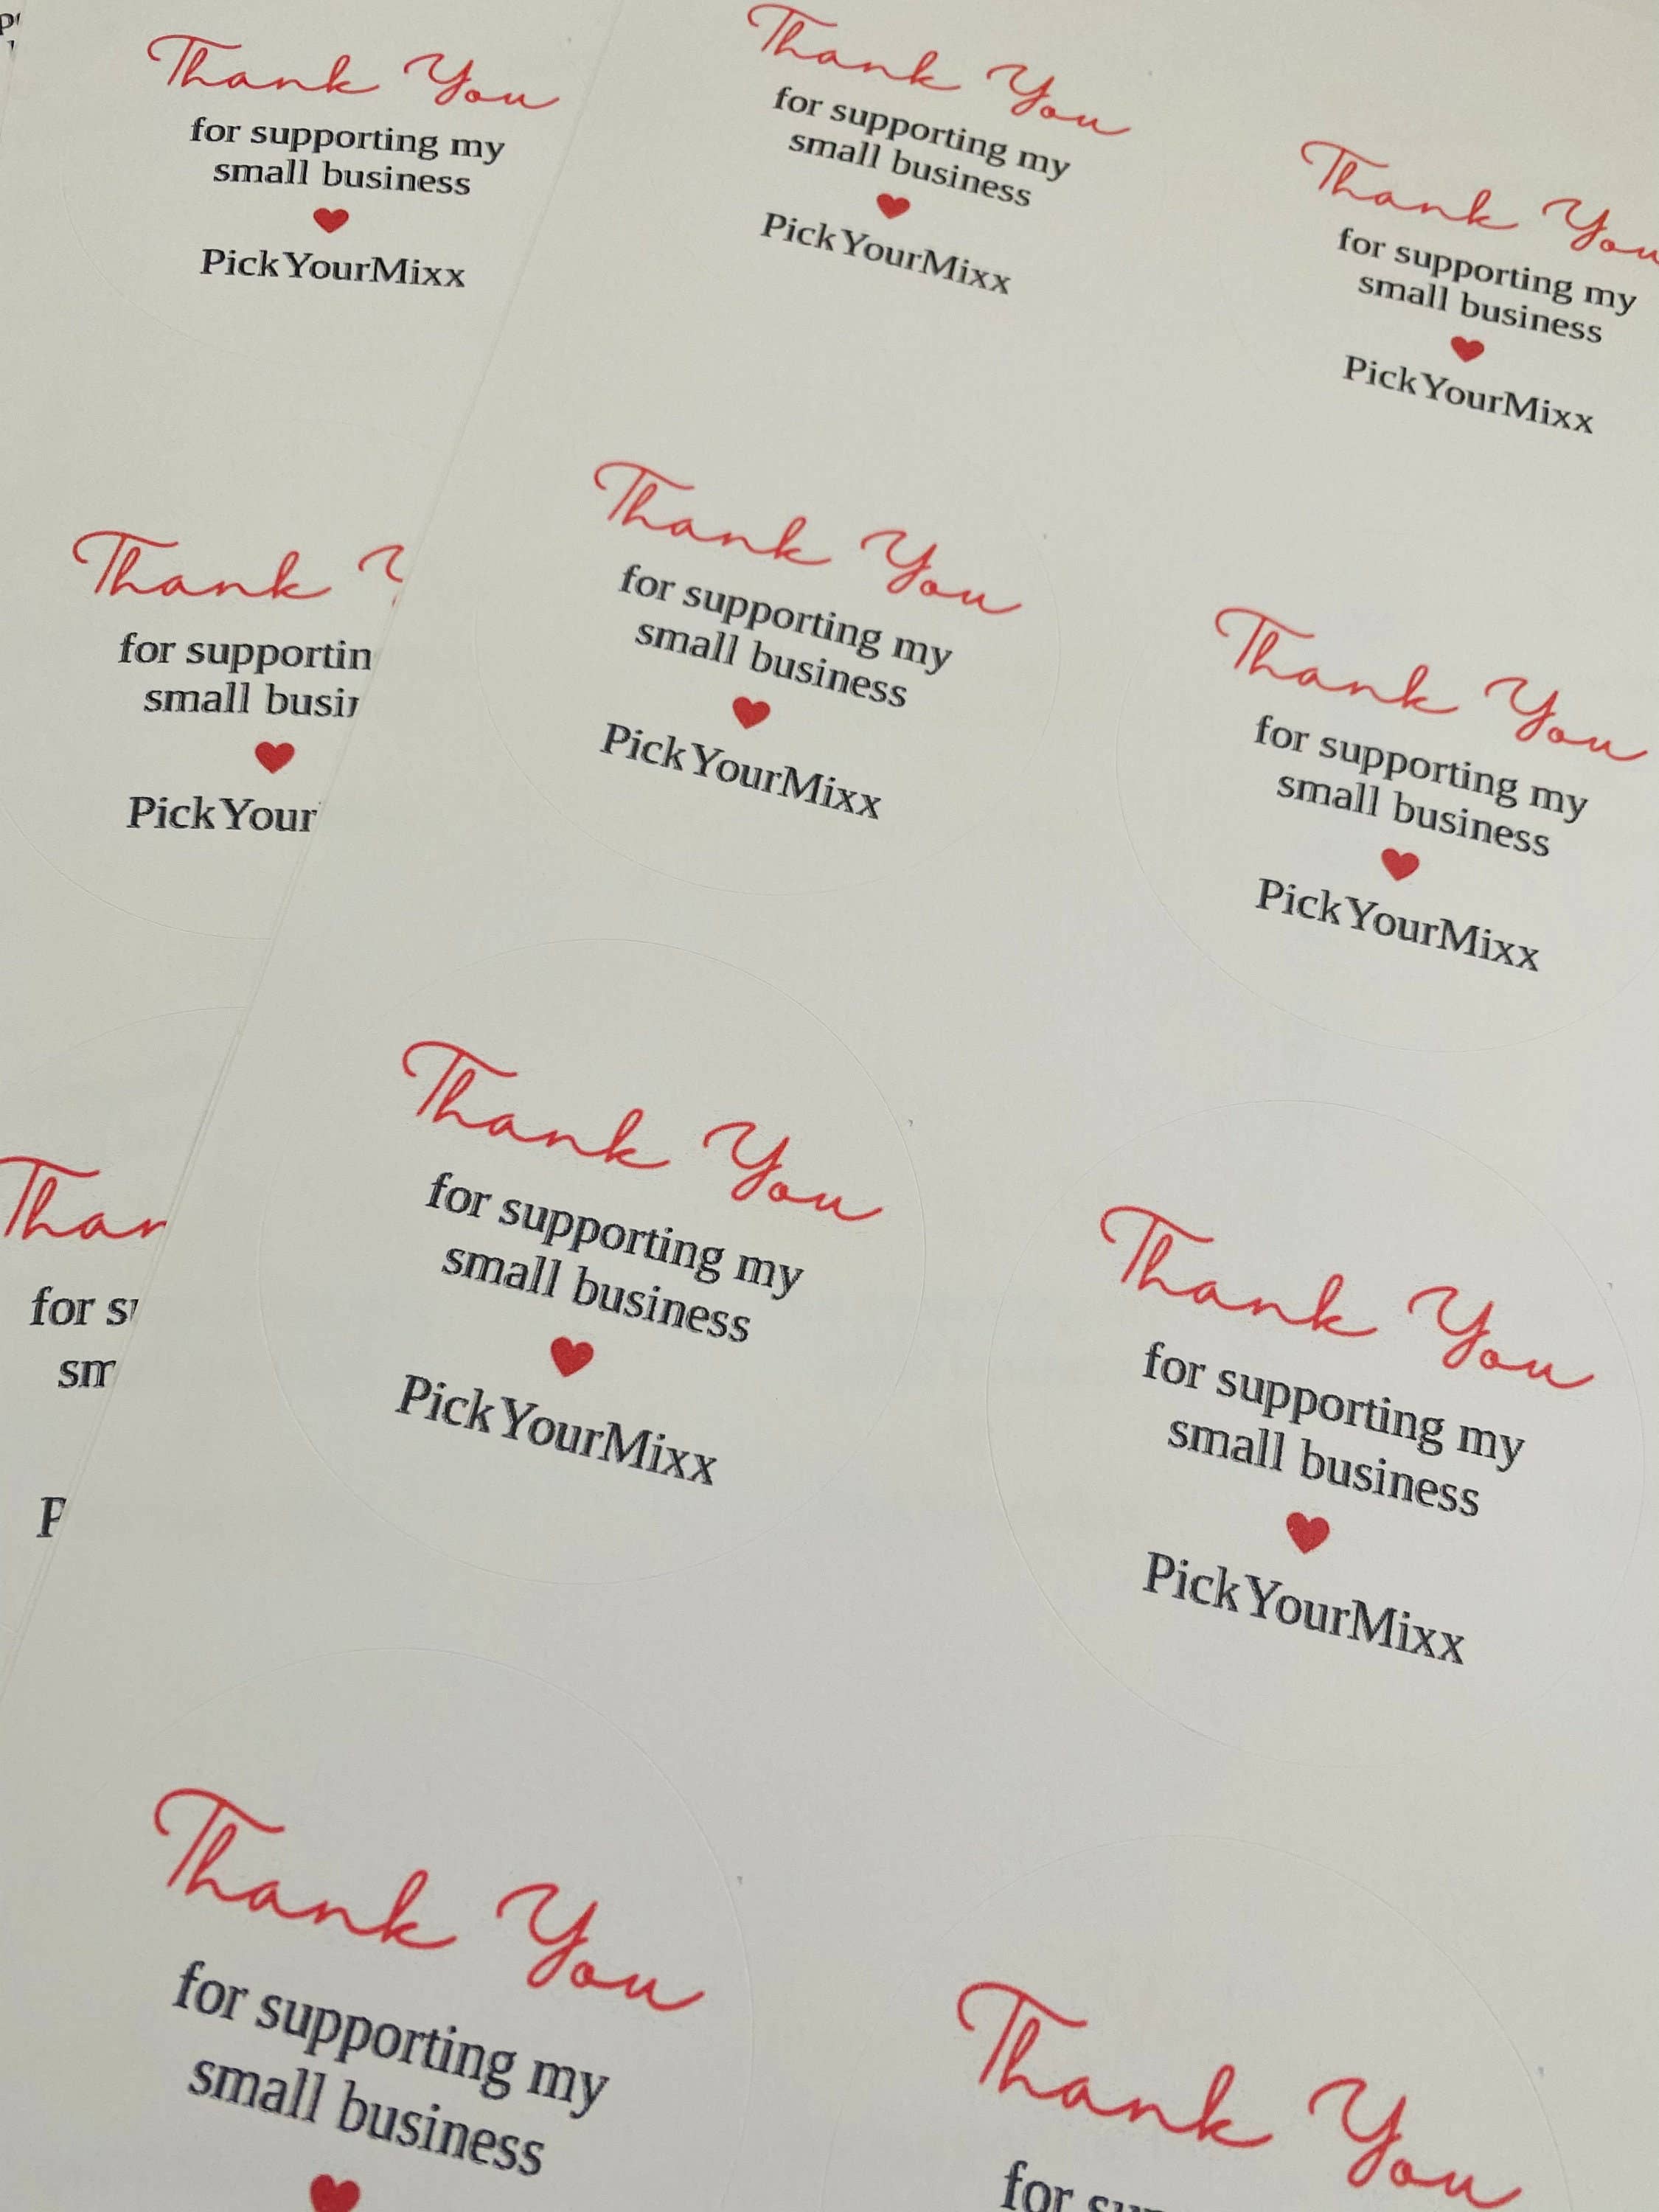 Thank You
for supporting my
small business
PickYourMixx
Thank You
for supporting my
small business
PickYourMixx
Thank You
for supporting my
small business
PickYourMixx
Thank
for supportin
small busi
PickYour
Thank You
for supporting my
small business
PickYourMixx
Thank You
for supporting my
small business
PickYourMixx
Than
for s
sm
P
Thank You
for supporting my
small business
PickYourMixx
Thank You
for supporting my
small business
PickYourMixx
Thank You
for supporting my
small business
Thank You
for su